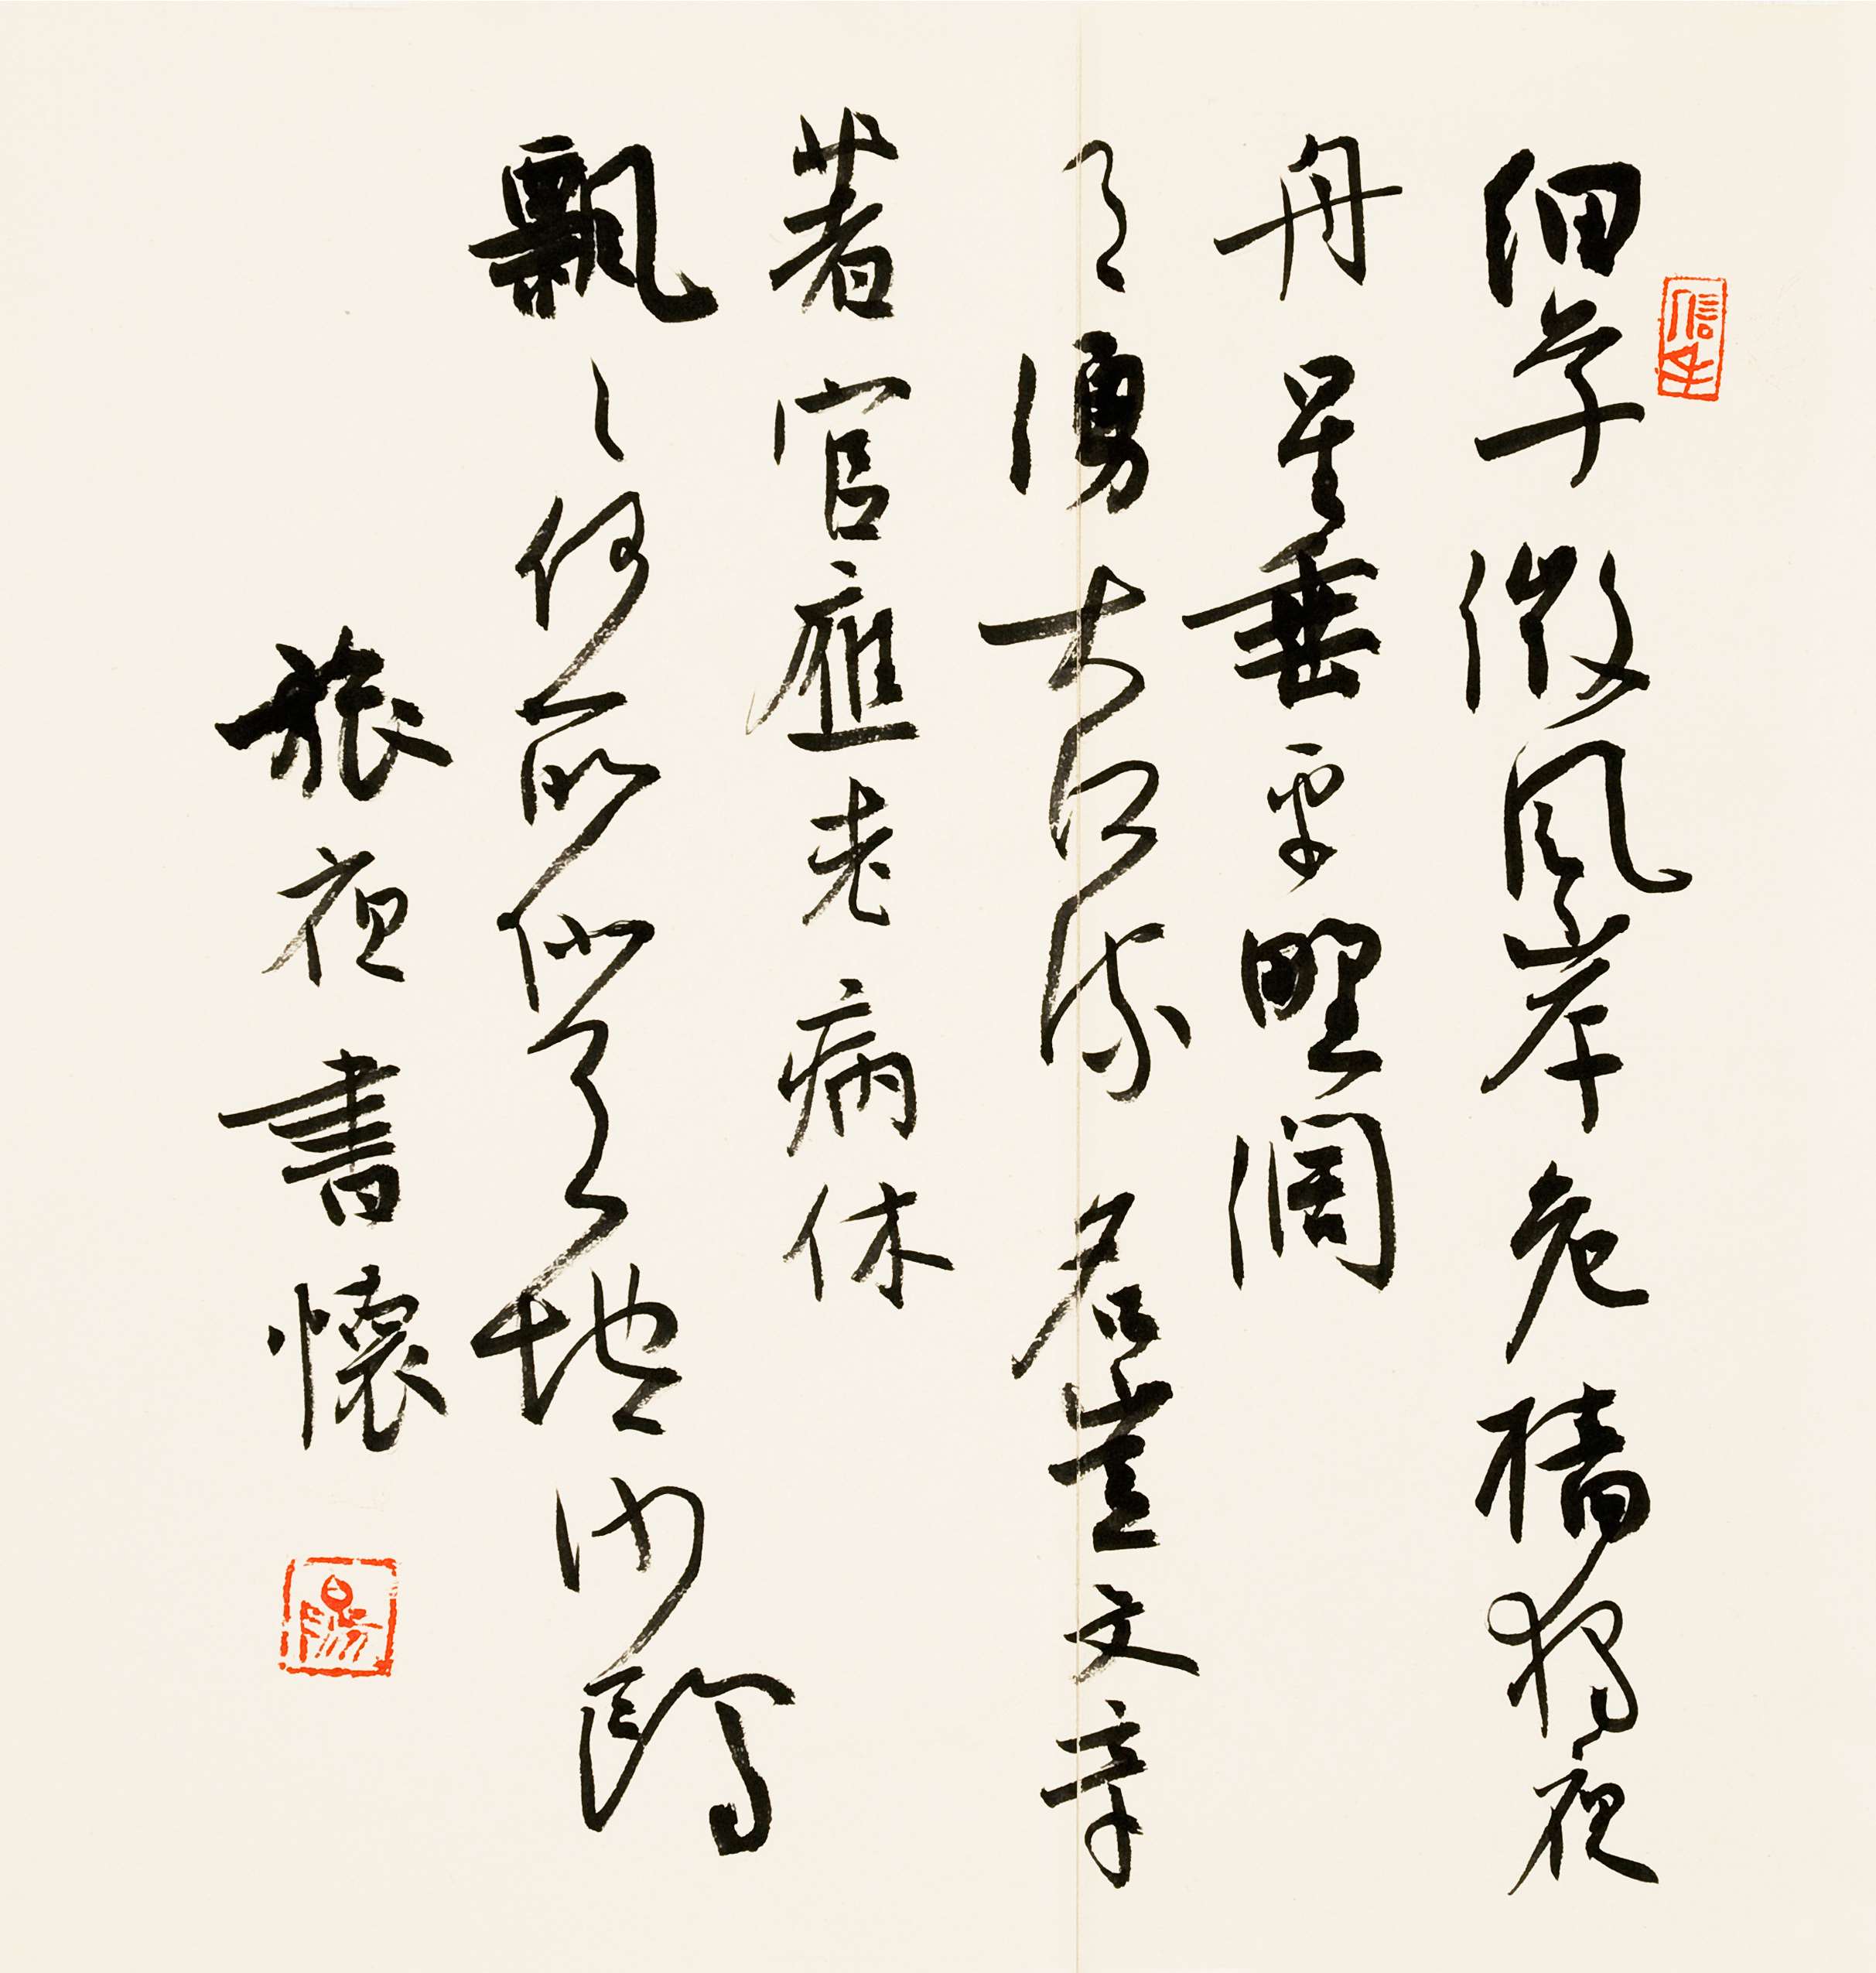 细草微风岸危樯独夜
舟星垂平野阔
月湧大江流名岂文章
著官應老病休
飘〻何所似天地沙鸥
旅夜書懷
信手